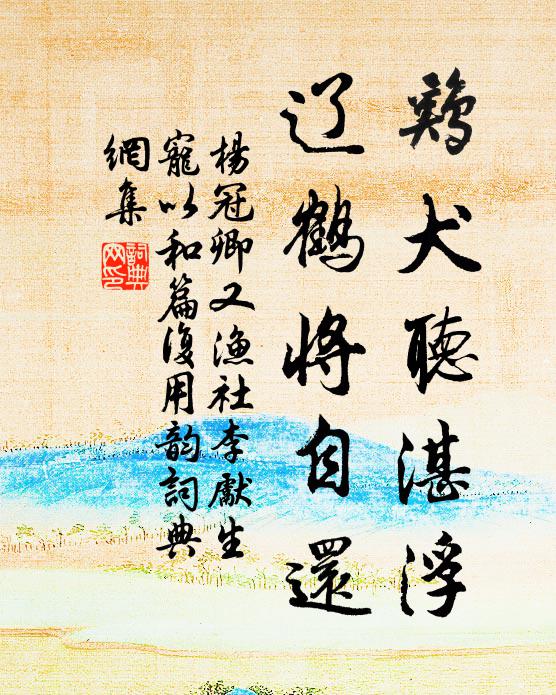 鸡犬聽湛浮
辽鶴將自還
楊冠卿又漁社李獻生
寵以和篇復用韵詞典
網集
詞典
网印